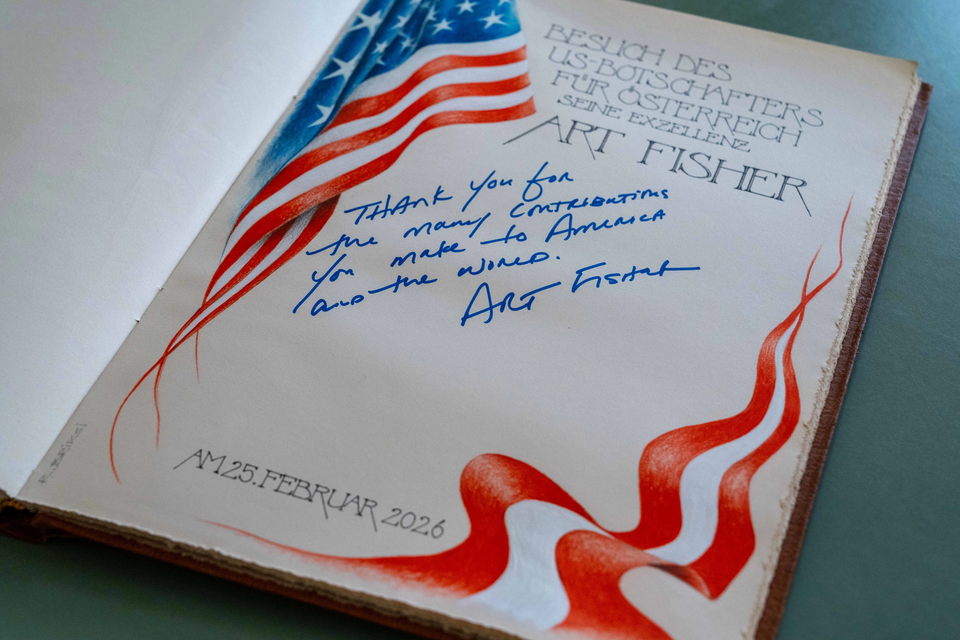 BESUCH DES
US-BOTSCHAFTERS
FÜR ÖSTERREICH
SEINE EXZELLENZ
ART FISHER
THANK you for
the many CONTRIBUTIONS
you make to AMERICA
AND the WORLD.
ART FISHER
AM 25. FEBRUAR 2026